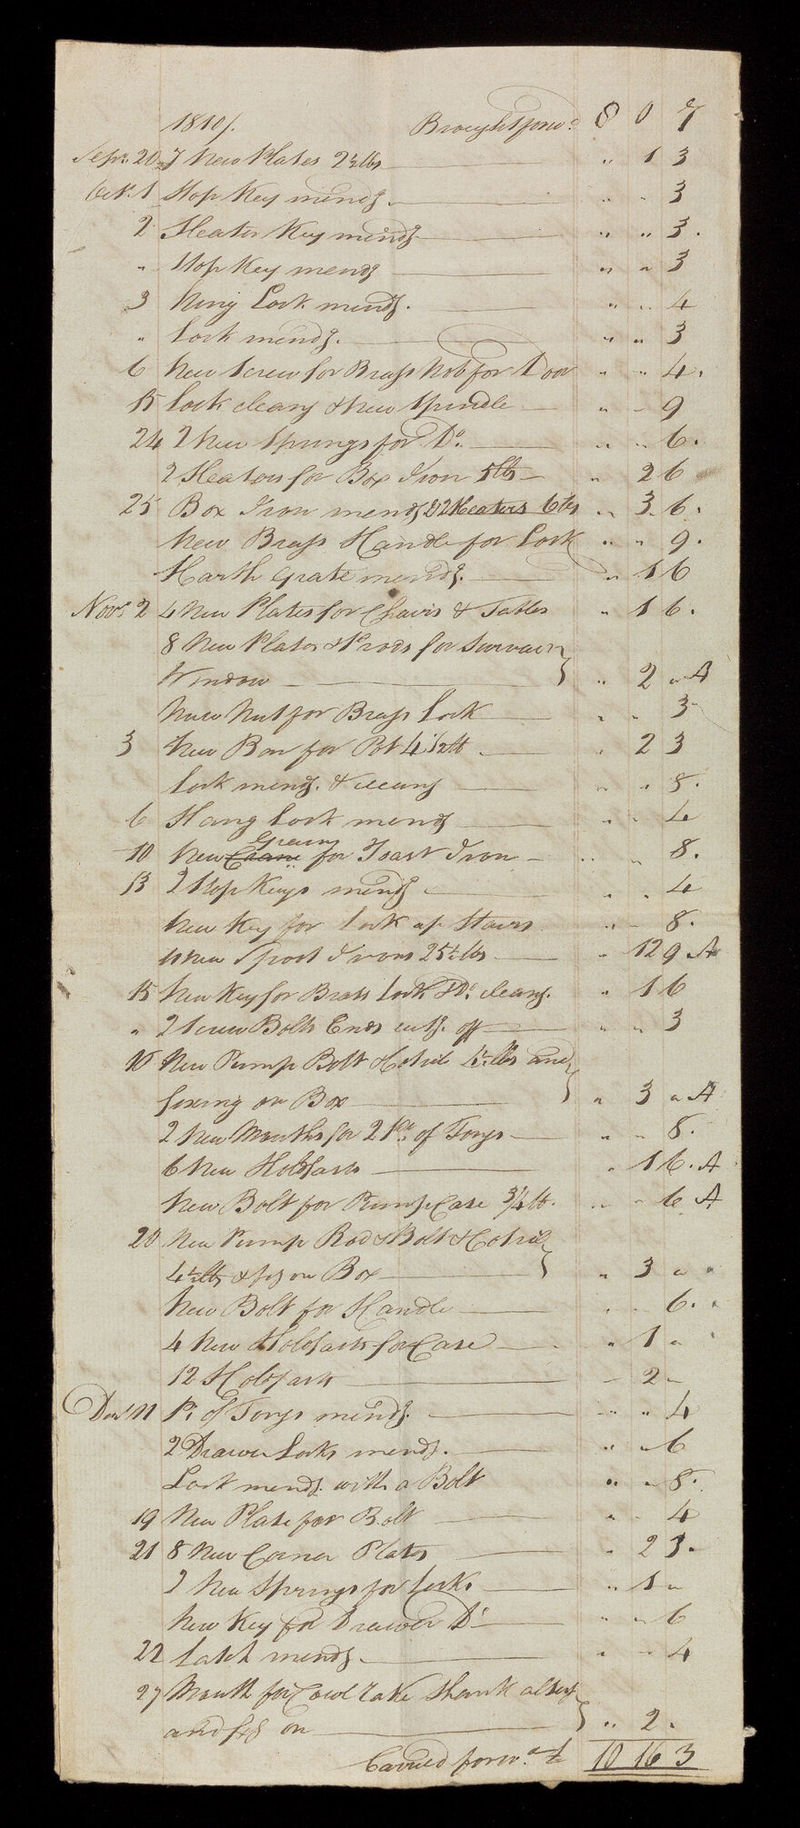 1810/. Brought forwd. 8 0 7
Sepr. 20 7 New Plates 2½lbs " 1 3
Octr. 1 Stop Key mendg. " " 3
2 Heator Key mendg " " 3.
" Stop Key mendg " " 3
3 Hing Lock mendg. " " 4
" Lock mendg. " " 3
6 New Screw for Brass Nob for Door " " 4.
15 Lock cleang & New Spindle " " 9
24 2 New Springs for Do. " " 6.
2 Heators for Box Iron 5lbs " 2 6
25 Box Iron mendg & 2 Heaters 6lbs " 3. 6.
New Brass Handle for Lock " " 9.
Harth Grate mendg. " 1 6
Novr. 2 4 New Plates for Chairs & Tables " 1 6.
8 New Plates & Prods for
Window " 2 " A
New Nut for Brass Lock " " 3
3 New Bar for Pot 4 1/2lb " 2 3
Lock mendg. & cleang " " 8.
6 Hang Lock mendg " " 4
10 New Crane Grain for Toast Iron " " 8.
13 2 Stop Keys mendg " " 4
New Key for Lock up Stairs " " 8.
New Spout Irons 25½lbs " 12 9 A
15 New Key for Brass Lock & Do. cleang. " 1 6
" 2 Screw Bolts Ends cuttg. off " " 3
16 New Pump Bolt & Cotril lbs and
fixing on Box " 3 " A
2 New Mouths for 2 Prs. of Tongs " " 8.
6 New Holdfasts " 1 6. A
New Bolt for Pump Case 3/4lb. " " 6 A
20 New Pump Rod & Bolt & Cotril
4½lbs & fixg on Box " 3 " "
New Bolt for Handle " " 6.
4 New Holdfasts for Case " 1 "
12 Holdfasts - 2 -
Decr. 11 Pr. of Tongs mendg. " " 4
2 Drawer Locks mendg. " " 6
Lock mendg. with a Bolt " " 8.
19 New Plate for Bolt " " 4
21 8 New Corner Plates " 2 3.
2 New Springs for Locks " 1 "
New Key for Drawer Do " " 6
22 Latch mendg. " " 4
27 Mouth for Cowl Rake Shank
and fixg on " 2 "
Carried forwd. £ 10 16 3